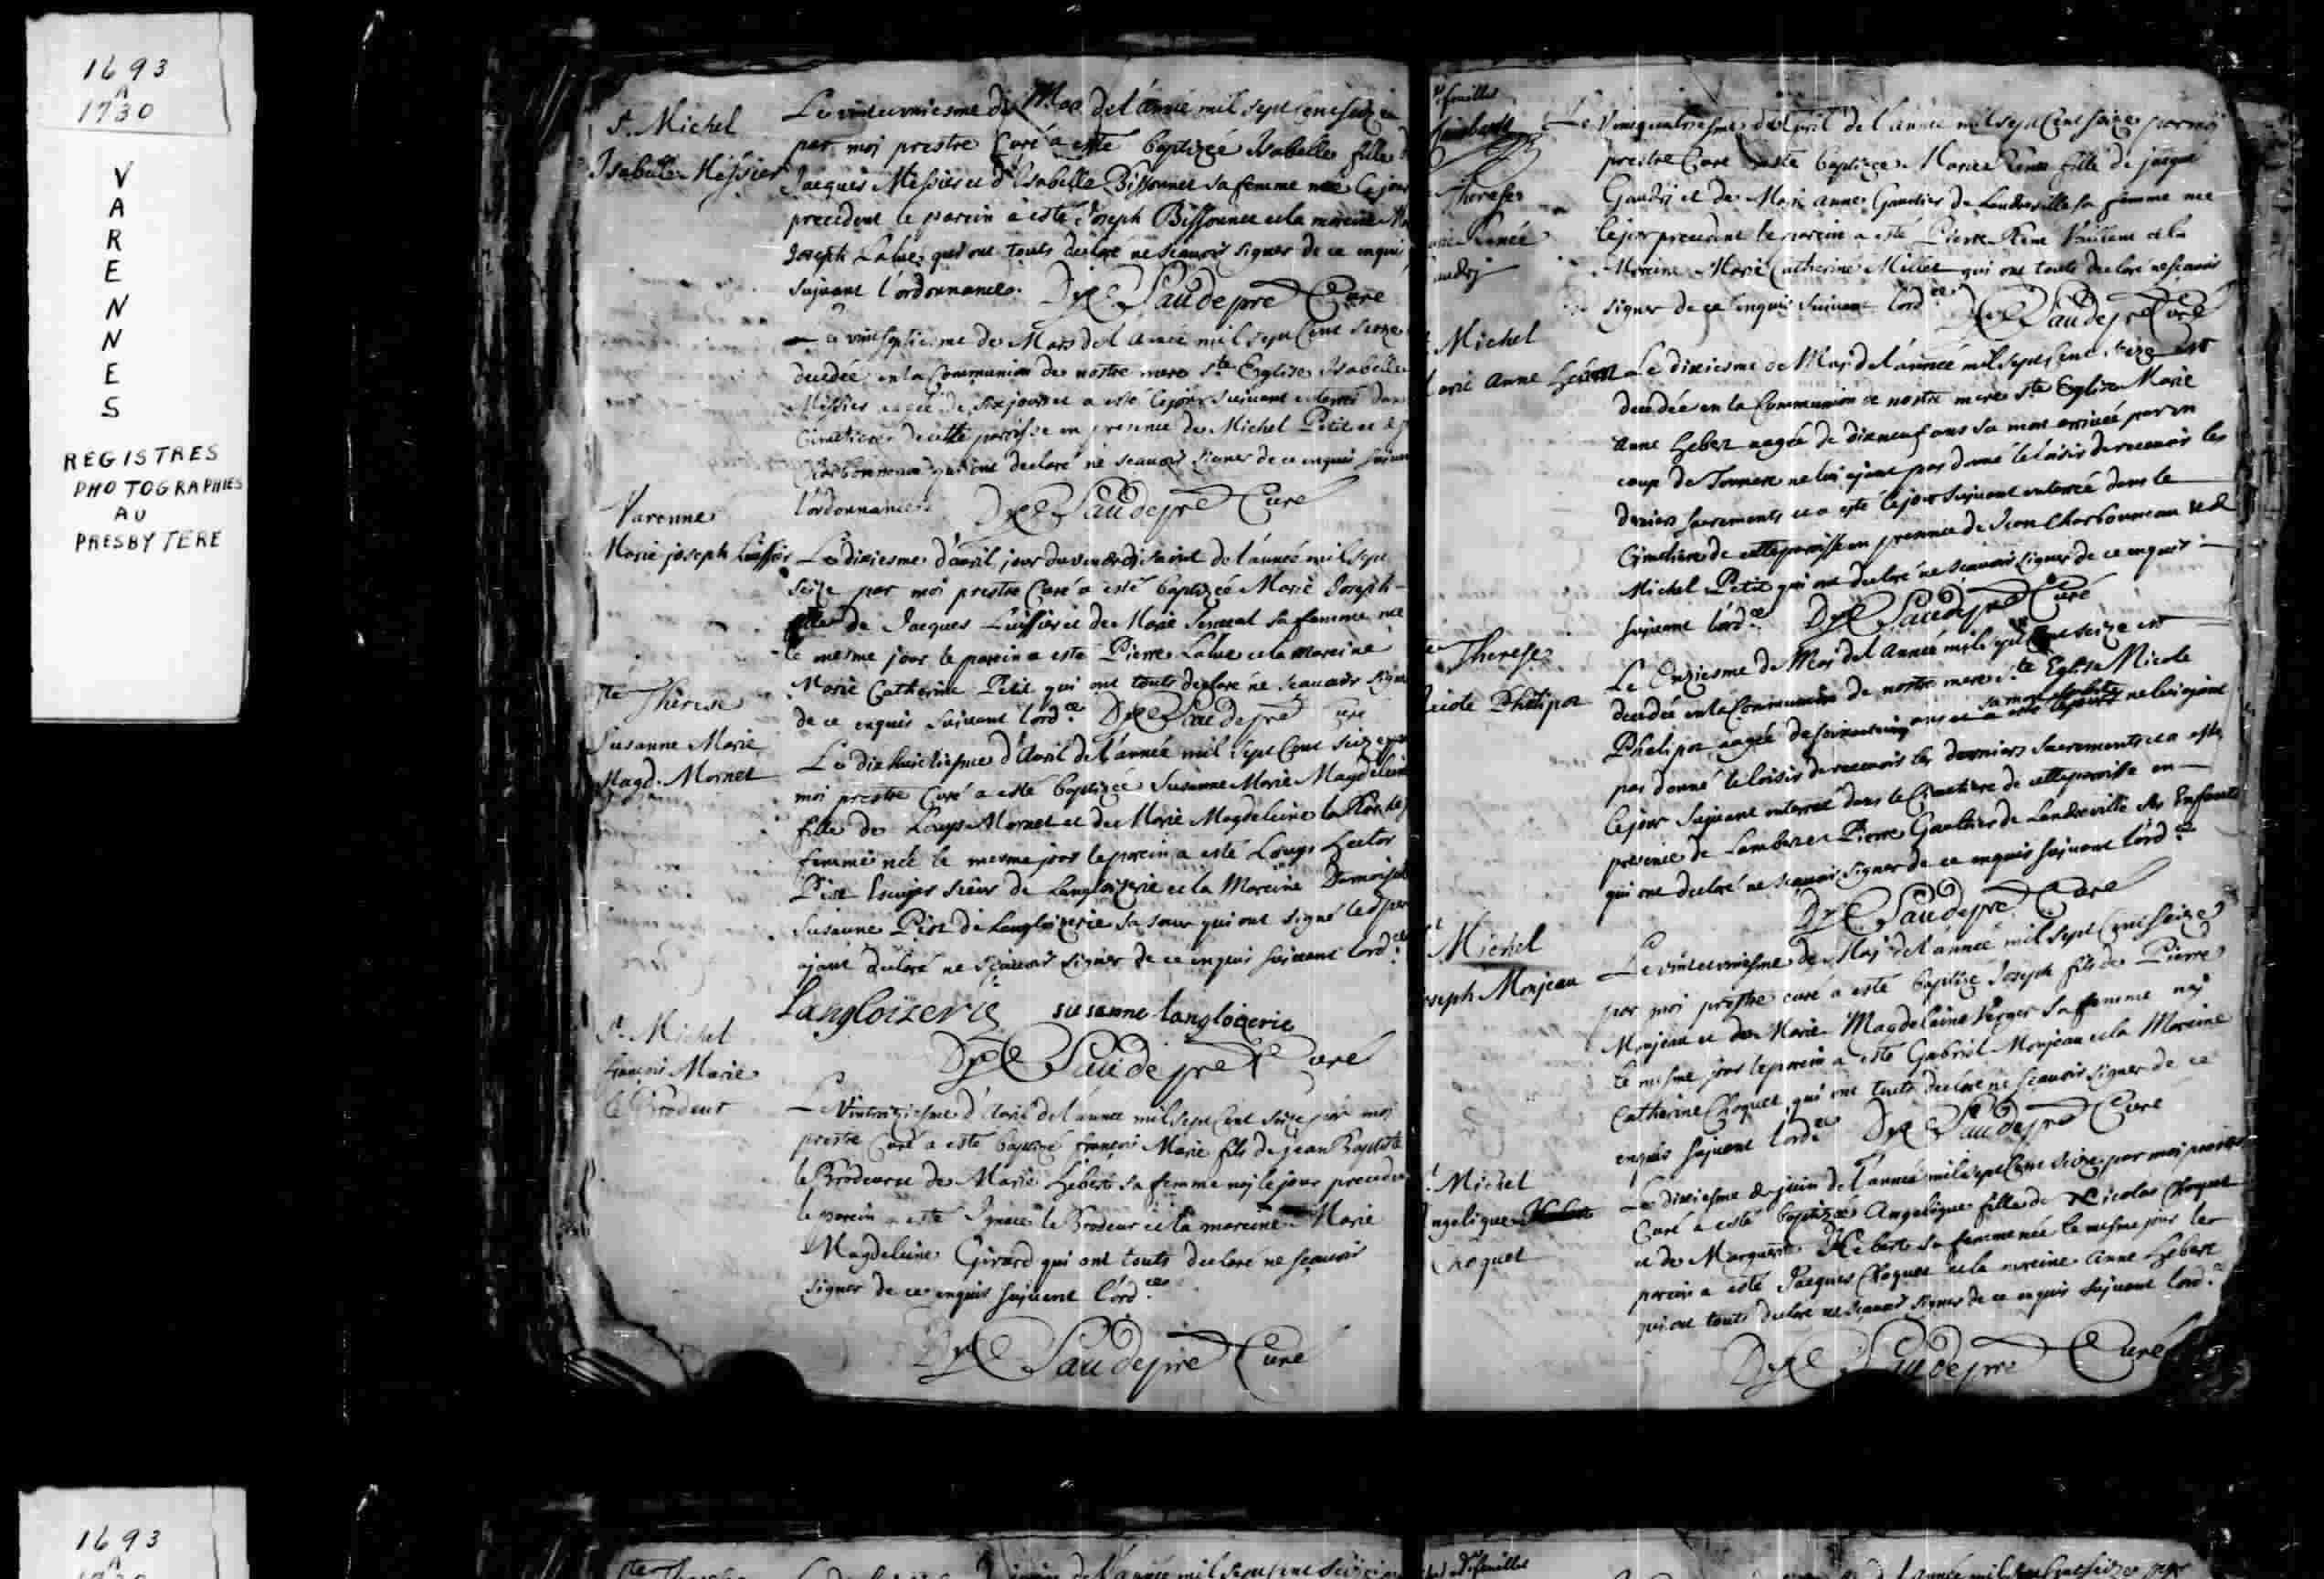 1693
A
1730
VARENNES
REGISTRES
PHOTOGRAPHIES
AU
PRESBYTERE
St. Michel
Isabelle Messier
Le vinteuniesme de Mars de l'année mil sept cent seize
par moi prestre Curé a esté baptizée Isabelle fille
Jacques Messier et d'Isabelle Bissonnet sa femme née le jour
precedent le parein a esté Joseph Bissonnet et la mareine
Joseph Lalue qui ont touts declaré ne scauoir signer de ce enquis
sujuant l'ordonnance. Saudepré Curé
vintseptiesme de Mars de l'année mil sept Cent seize
decedée en la Communion de nostre mere Ste Eglise Isabelle
Messier aagée de six jours et a esté le jour sujuant enterrée dans
Cimetiere de cette paroisse en presence de Michel Petit et
Charbonneau qui ont declaré ne scauoir signer de ce enquis
l'ordonnance. Saudepré Curé
Varenne
Marie joseph Lussier
Le dixiesme d'auril jour du vendredi saint de l'année mil sept
seize par moi prestre Curé a esté baptizée Marie Joseph
fille de Jacques Lussier et de Marie Senecal sa femme née
le mesme jour le parein a esté Pierre Lalue et la mareine
Marie Catherine Petit qui ont touts declaré ne scauoir signer
de ce enquis sujuant l'ordce. Saudepré Curé
Ste Thérese
Susanne Marie
Magd. Mornet
Le dixhuictiesme d'Auril de l'année mil sept Cent seize par
moi prestre Curé a esté baptizée Susanne Marie Magdeleine
fille de Louys Mornet et de Marie Magdeleine
femme née le mesme jour le parein a esté Louys Hector
Piot Escuyer sieur de Langloiserie et la Mareine Damoiselle
Susanne Piot de Langloizerie sa soeur qui ont signé le
ajant declaré ne scauoir signer de ce enquis sujuant l'ordce.
Langloizerie susanne langloizerie
Saudepré Curé
St. Michel
françois Marie
le Brodeur
Le Vintroiziesme d'Auril de l'année mil sept Cent seize par moi
prestre Curé a esté baptizé françois Marie fils de jean Baptiste
le Brodeur et de Marie Hebert sa femme naj le jour precedent
le parein a esté Ignace le Brodeur et la mareine Marie
Magdeleine Girard qui ont touts declaré ne scauoir
signer de ce enquis sujuant l'ordce.
Saudepré Curé
Therese
Marie Renée
Gaudry
Le Vintquatriesme d'Auril de l'année mil sept Cent seize par moi
prestre Curé a esté baptizée Marie Renée fille de jaque
Gaudrj et de Marie anne Gautier de Landreuille sa femme née
le jour precedent le parein a esté Pierre René Vaillant et la
Mareine Marie Catherine Millet qui ont touts declaré ne scauoir
signer de ce enquis suiuant l'ordce. Saudepré Curé
Michel
Marie Anne Hebert
Le dixiesme de Maj de l'année mil sept Cent seize est
decedée en la Communion de nostre mere Ste Eglise Marie
Anne Hebert aagée de dixneuf ans sa mort arriuée par un
coup de Tonnere ne lui ajant pas donné le loisir de receuoir les
derniers Sacrements et a esté le jour sujuant enterrée dans le
Cimetiere de cette paroisse en presence de Jean Charbonneau et de
Michel Petit qui ont declaré ne scauoir signer de ce enquis
sujuant l'ordce. Saudepré Curé
Therese
Nicole Phelipot
Le Onziesme de Maj de l'Année mil sept Cent seize est
decedée en la Communion de nostre mere Ste Eglise Nicole
Phelipot aagée de ans sa mort subite ne lui ajant
pas donné le loisir de receuoir les derniers Sacrements et a esté
le jour sujuant enterrée dans le Cimetiere de cette paroisse en
presence de Lambert et Pierre Gaultier de Landreuille ses Enfants
qui ont declaré ne scauoir signer de ce enquis sujuant l'ordce.
Saudepré Curé
Michel
Joseph Monjeau
Le vinteuniesme de Maj de l'année mil sept Cent seize
par moi prestre curé a esté baptizé Joseph fils de Pierre
Monjeau et de Marie Magdeleine Verger sa femme naj
le mesme jour le parein a esté Gabriel Monjeau et la Mareine
Catherine Choquet qui ont touts declaré ne scauoir signer de ce
enquis sujuant l'ordce. Saudepré Curé
Michel
Angelique
Choquet
Le dixiesme de juin de l'année mil sept Cent seize par moi prestre
Curé a esté baptizée Angelique fille de Nicolas Choquet
et de Marguerite Hebert sa femme née le mesme jour le
parein a esté Jacques Choquet et la mareine Anne Hebert
qui ont touts declaré ne scauoir signer de ce enquis sujuant l'ordce.
Saudepré Curé
1693
A